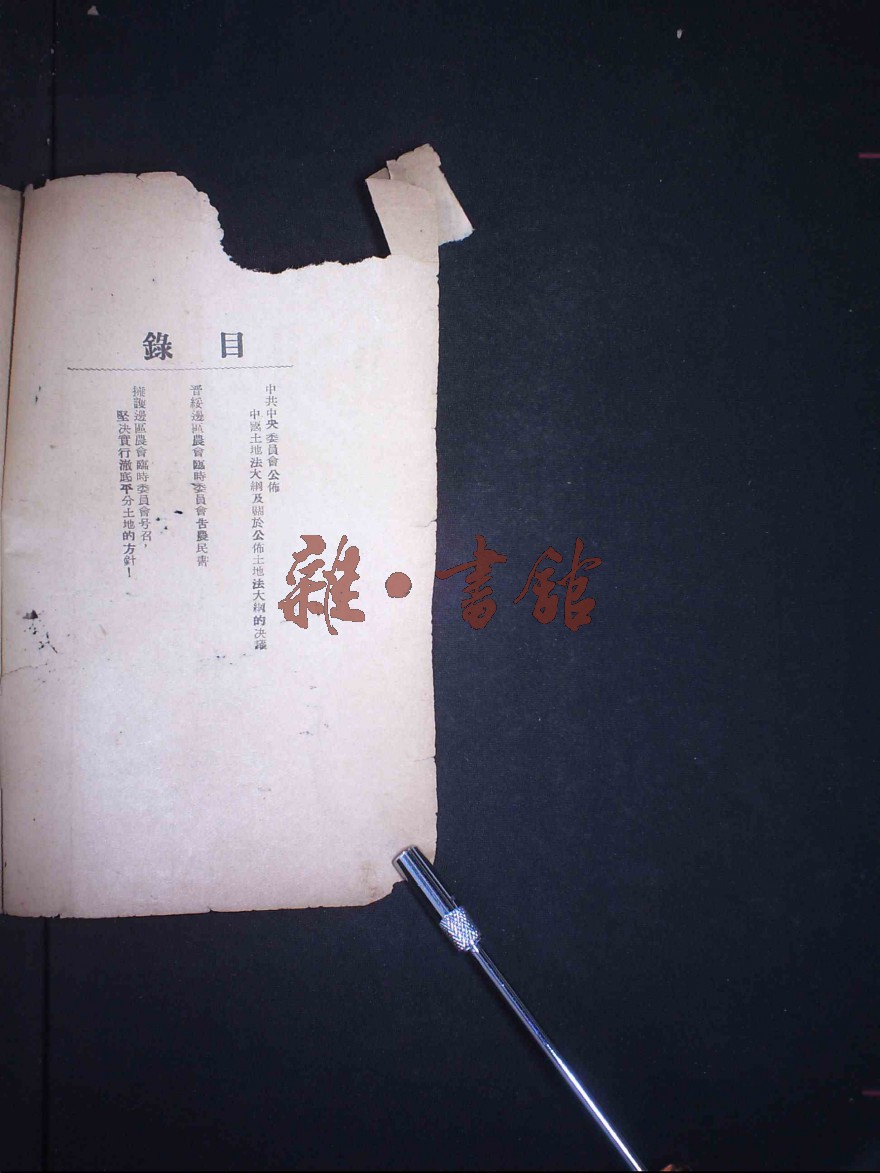 目錄
中共中央委員會公佈
中國土地法大綱及關於公佈土地法大綱的决議
晋綏邊區農會臨時委員會告農民書
擁護邊區農會臨時委員會号召，
堅决實行澈底平分土地的方針！
雜·書館